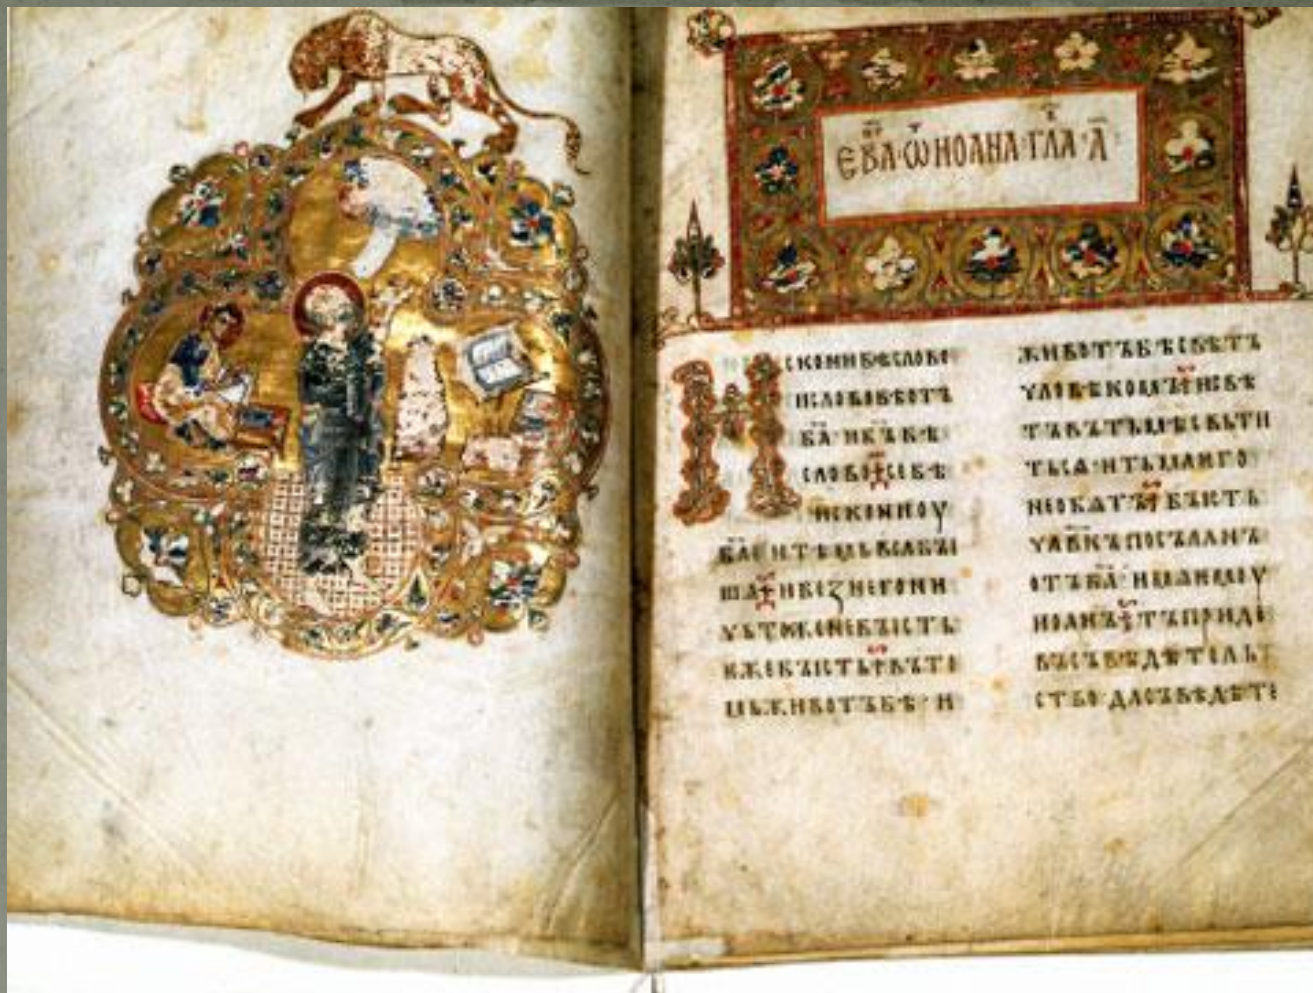 ЕВА·ѾИОАНА·ГЛА·А҃
ИСКОНИБѢСЛОВО
ИСЛОВОБѢОТЪ
БА҃·ИБЪ҃БѢ
СЛОВО·СЕБѢ
ИСКОНИОУ
БА҃·ИТѢМЬВСѦБЫ
ШѦ·ИБЕЗНЕГОНИ
ЧЬТОЖЕНЕБЫСТЬ
ЕЖЕБЫСТЬ·ВЪТО
МЬЖИВОТЪБѢ·И
ЖИВОТЪБѢСВѢТЪ
ЧЛОВѢКОМЪ·ИСВѢ
ТЪВЪТЬМѢСВЬТИ
ТЬСѦ·ИТЬМАѤГО
НЕОБѦТЪ·БЫСТЬ
ЧЛ҃ВКЪПОСЪЛАНЪ
ОТЪБА҃·ИМѦѤМОУ
ИОАНЪ·ТЪПРИДЕ
ВЪСЪВѢДѢТЕЛЬ
СТВО·ДАСЪВѢДѢТЕ